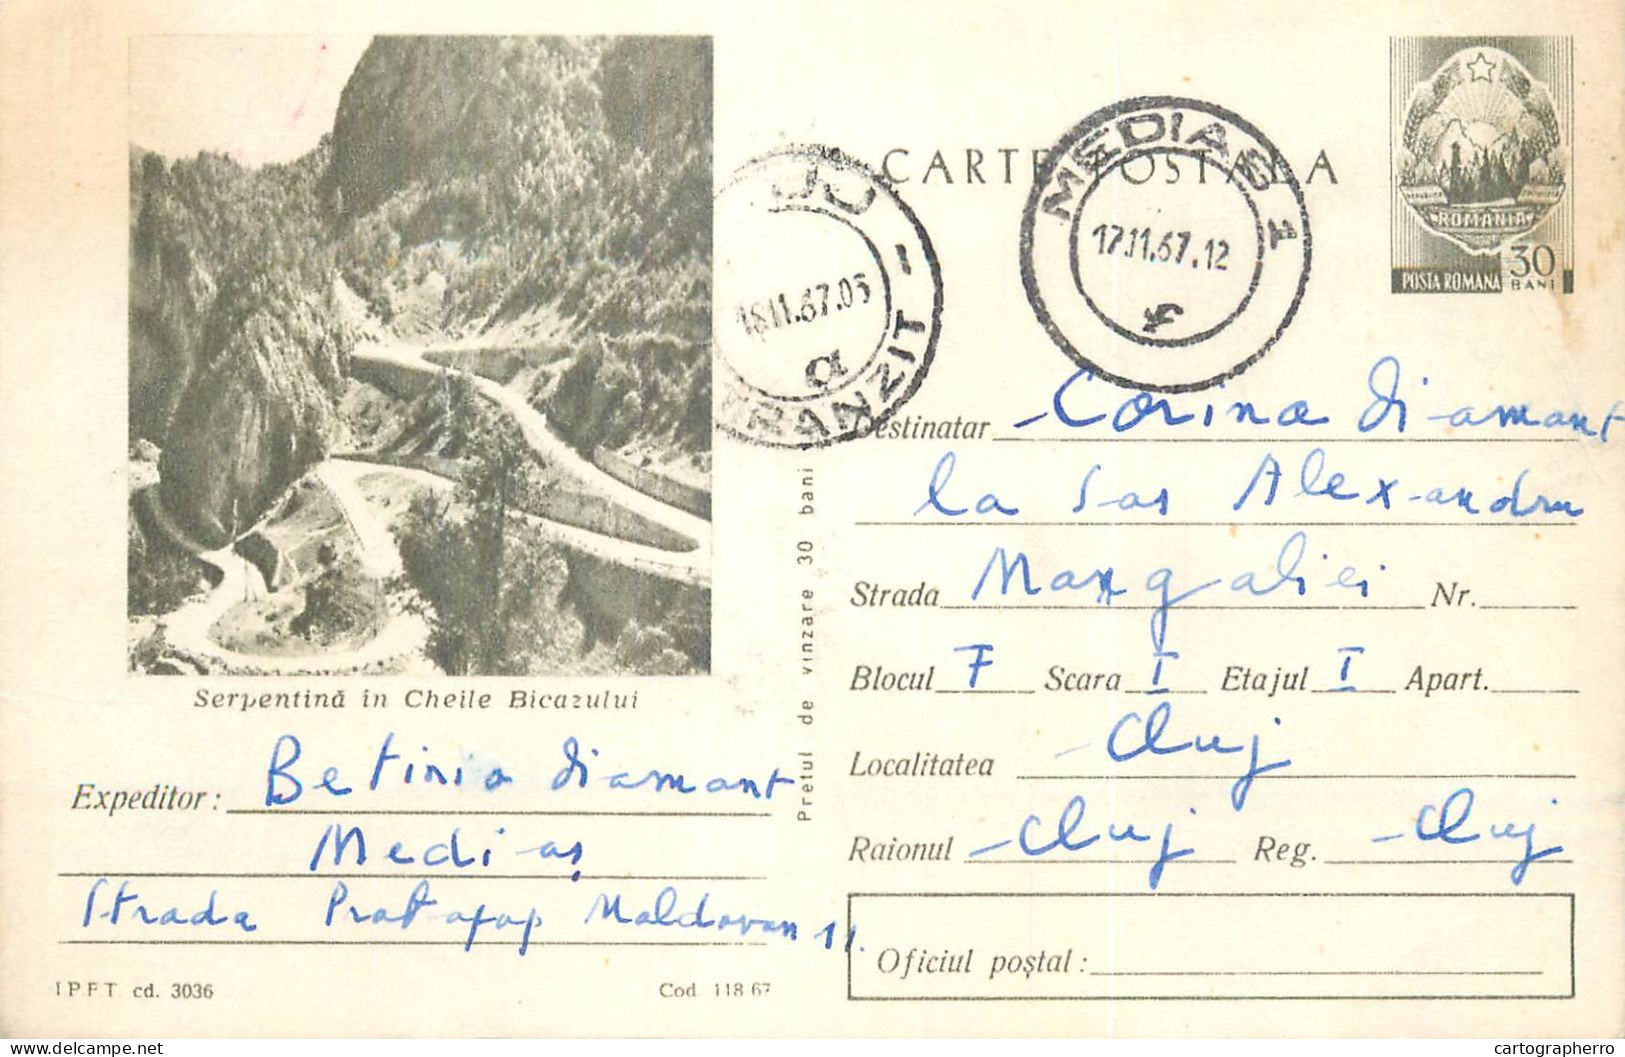 CARTE POSTALA
MEDIAS 1
17.11.67.12
TRANZIT
18.11.67.05
a
ROMANIA
POSTA ROMANA
30
BANI
Serpentină în Cheile Bicazului
Destinatar Corina Diamant
la Sas Alexandru
Strada Mangaliei Nr.
Blocul F Scara I Etajul I Apart.
Localitatea Cluj
Raionul Cluj Reg. Cluj
Oficiul poștal :
Pretul de vinzare 30 bani
Expeditor : Betinia Diamant
Mediaș
Strada Protopop Moldovan 11.
I P F T cd. 3036
Cod 118 67
delcampe.net
cartographerro